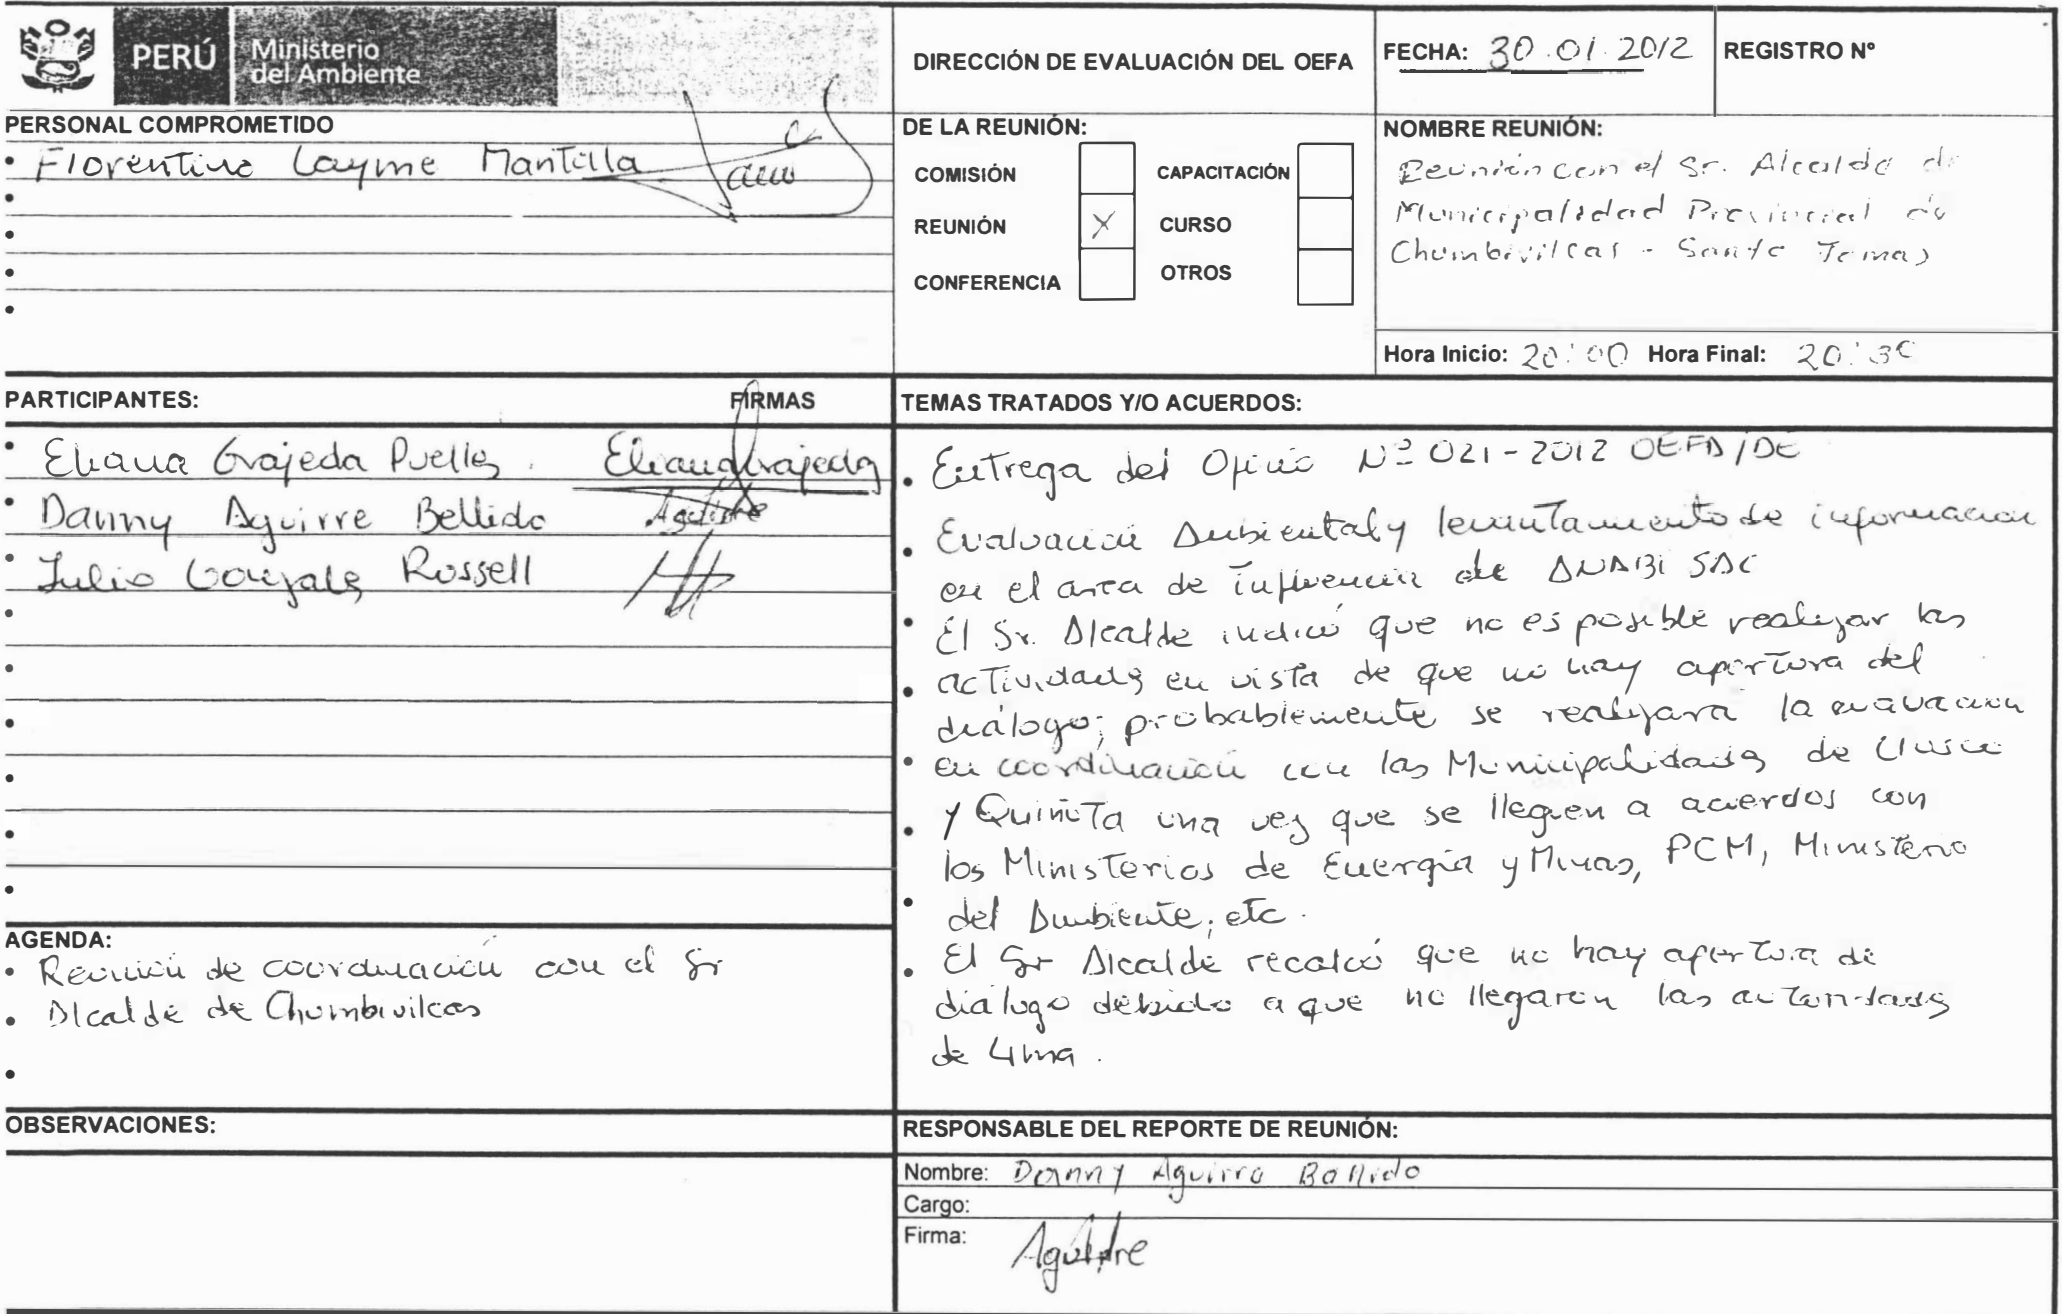 PERÚ
Ministerio
del Ambiente
DIRECCIÓN DE EVALUACIÓN DEL OEFA
FECHA: 30.01.2012
REGISTRO Nº
PERSONAL COMPROMETIDO
• Florentino Layme Mantilla
•
•
•
•
DE LA REUNIÓN:
COMISIÓN
CAPACITACIÓN
REUNIÓN X
CURSO
CONFERENCIA
OTROS
NOMBRE REUNIÓN:
Reunión con el Sr. Alcalde de
Municipalidad Provincial de
Chumbivilcas - Santo Tomas
Hora Inicio: 20:00 Hora Final: 20:30
PARTICIPANTES: FIRMAS
• Eliana Grajeda Puelles. Eliana Grajeda
• Danny Aguirre Bellido Aguirre
• Julio Gonzales Rossell
•
•
•
•
•
•
AGENDA:
• Reunión de coordinación con el Sr
• Alcalde de Chumbivilcas
•
TEMAS TRATADOS Y/O ACUERDOS:
• Entrega del Oficio Nº 021-2012 OEFA/DE
• Evaluación Ambiental y levantamiento de información
en el area de influencia de ANABI SAC
• El Sr. Alcalde indicó que no es posible realizar las
• actividades en vista de que no hay apertura del
diálogo; probablemente se realizará la evaluación
• en coordinación con las Municipalidades de Llusco
• y Quiñota una vez que se lleguen a acuerdos con
los Ministerios de Energía y Minas, PCM, Ministerio
• del Ambiente, etc.
• El Sr Alcalde recalcó que no hay apertura de
diálogo debido a que no llegaron las autoridades
de Lima.
OBSERVACIONES:
RESPONSABLE DEL REPORTE DE REUNIÓN:
Nombre: Danny Aguirre Bellido
Cargo:
Firma: Aguirre